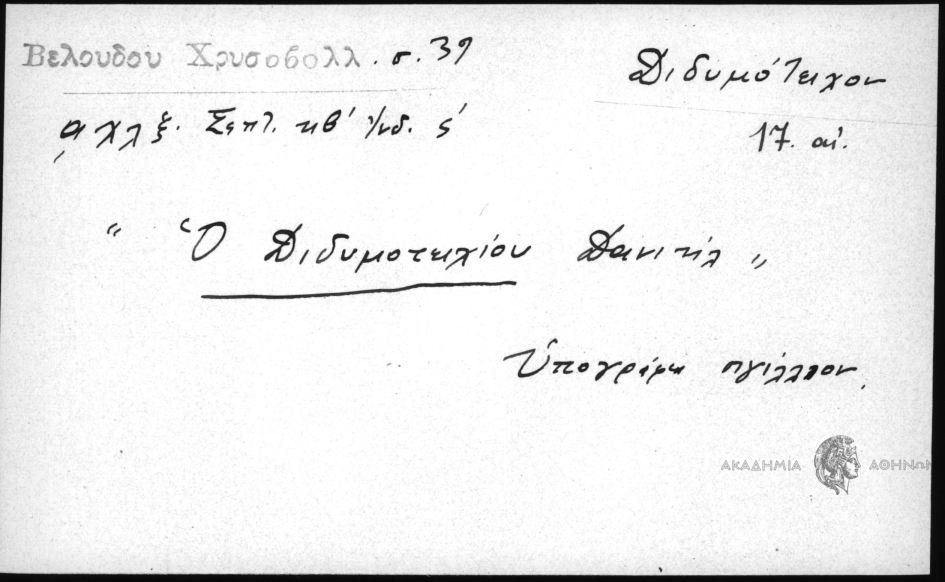 Βελουδου Χρυσοβολλ. σ. 39
Διδυμότειχον
͵αχλξ. Σεπτ. κβ´ Ἰνδ. ς´
17. αἰ.
" Ὁ Διδυμοτειχίου Δανιήλ "
Ὑπογράφει σιγίλλιον.
ΑΚΑΔΗΜΙΑ ΑΘΗΝΩΝ